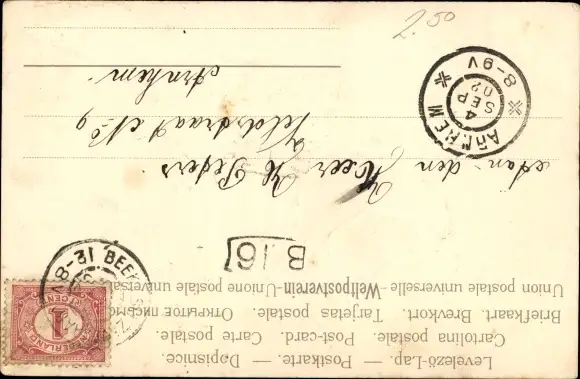 Levelező-Lap. — Postkarte. — Dopisnice.
Cartolina postale. Post-card. Carte postale.
Briefkaart. Brevkort. Tarjetas postale. Открытое
Union postale universelle Weltpostverein-Unione postale universa
B.16
Aan den Heer H Peters
No 9
Arnhem
ARNHEM
4 SEP 02
8-9V
8-12V BEEK
NEDERLAND
1
CENT
2.50